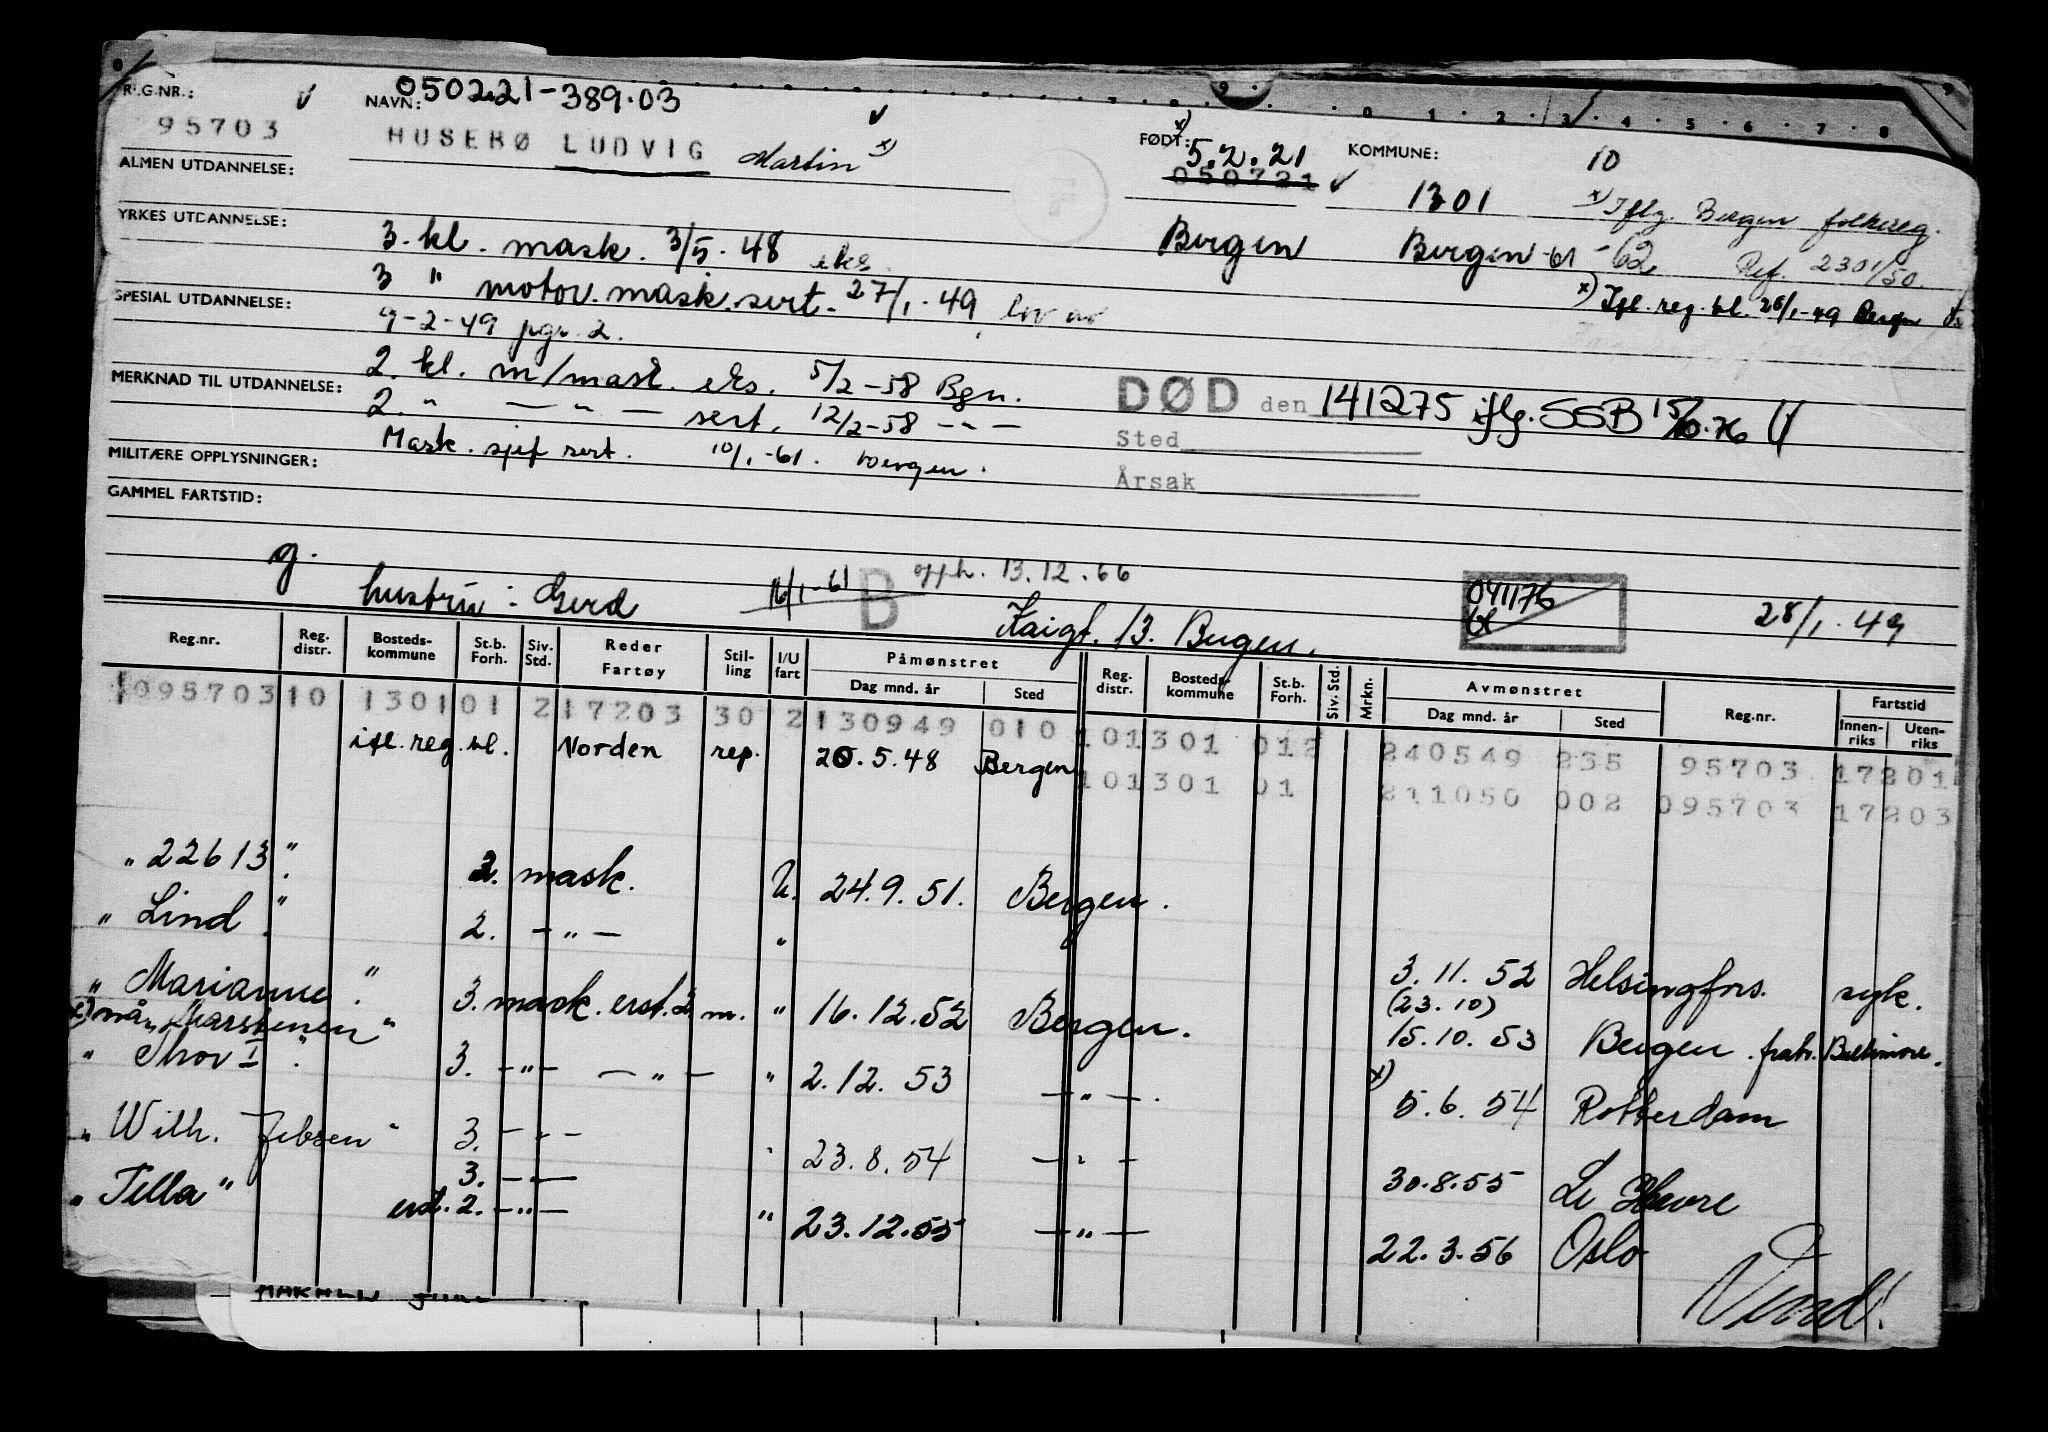 R.G.NR.: NAVN: 050221-389.03
95703 HUSEBØ LUDVIG Martin x) FØDT: x) 5.2.21 KOMMUNE: 10
ALMEN UTDANNELSE: 050721 1301 x) Iflg. Bergen folkereg.
YRKES UTDANNELSE: 3. kl. mask. 3/5.48 eks. Bergen Bergen -61 -62 Ref. 2301/50.
3 " motor.mask.sert. 27/1.-49 lov av x) Ifl. reg. bl. 28/1-49 Bergen
SPESIAL UTDANNELSE: 9-2-49 pgr. 2.
MERKNAD TIL UTDANNELSE: 2. kl. m/mask. eks. 5/2-58 Bgn. DØD den 141275 iflg. SSB 15/10.76
2. " — " — sert. 12/2-58 — " —
Sted
MILITÆRE OPPLYSNINGER: Mask. sjef sert. 10/1.-61. Bergen.
Årsak
GAMMEL FARTSTID:
g.
hustru: Gerd 16/1-61 B opph. 13.12.66 Kaigt. 13. Bergen. 041176 28/1.49
Reg.nr. Reg. distr. Bosteds-kommune St.b. Forh. Siv. Std. Reder Fartøy Stil-ling I/U fart Påmønstret Dag mnd. år Sted Reg. distr. Bosteds-kommune St.b. Forh. Siv. Std. Mrkn. Avmønstret Dag mnd. år Sted Reg.nr. Fartstid Innen-riks Uten-riks
109570310 130101 217203 30 2130949 010 101301 012 240549 235 95703 17201
ifl. reg. bl. Norden rep. 20.5.48 Bergen 101301 01 211050 002 095703 17203
" 22613 " 2. mask. U. 24.9.51. Bergen.
" Lind " 2. — " — " 3.11.52 Helsingfors. syk.
(23.10)
" Marianne " 3. mask. erst. 2 m. " 16.12.52 Bergen. 15.10.53 Bergen. fratr. Baltimore.
x) nå " Marstenen "
" Thor I " 3. — " — — " — " 2.12.53 — " — x) 5.6.54 Rotterdam
" Wilh. Jebsen " 3. — " — " 23.8.54 — " — 30.8.55 Le Havre
3. — " —
" Tella " erst. 2. — " — " 23.12.55 — " — 22.3.56 Oslo
Vend!